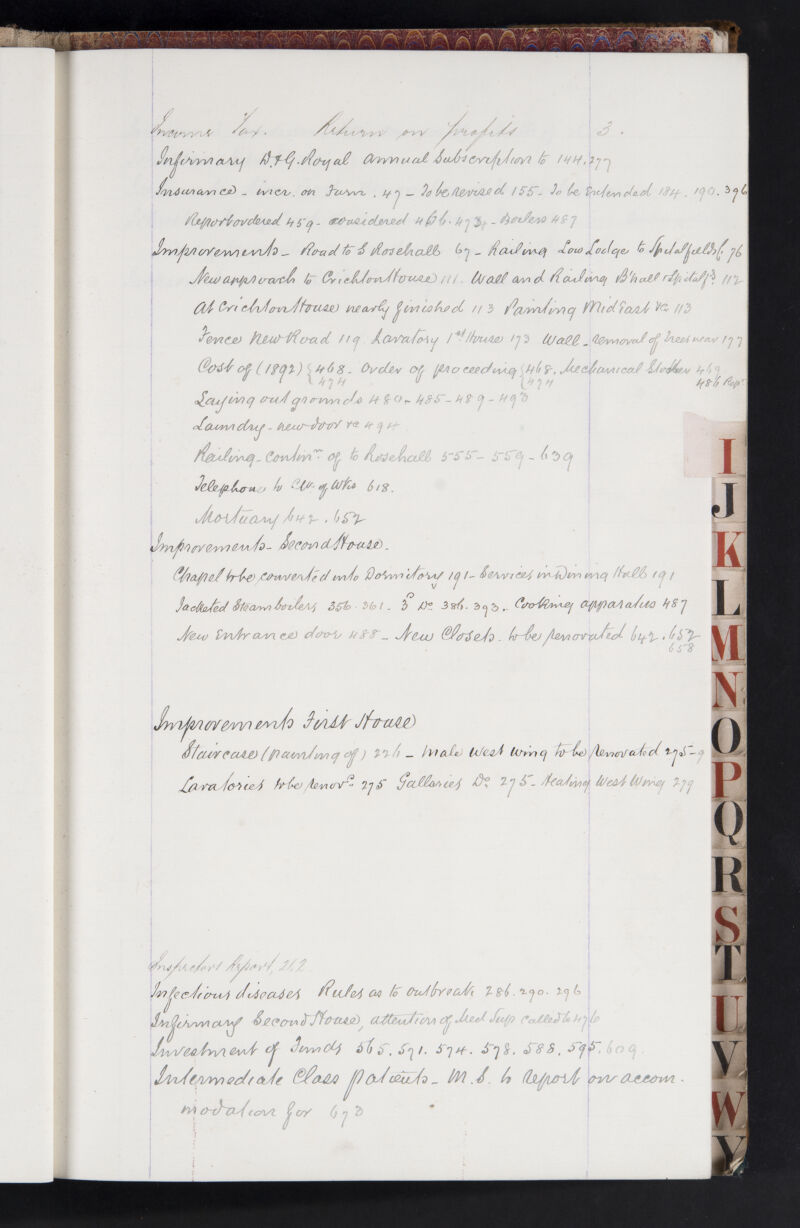 Income Tax. Return on profits 3.
Infirmary D.&G. Royal annual Subscription to 144.277
Insurance - incr. on Furn. 47 - To be revised 155 - To be Extended 184. 190. 396
Report ordered 459 - considered 466. 473 - Boilers 487
Improvements - Road to S Rosehall 67 - Railing Low Lodge to Spitalfields 76
New approach to Crichton House 111. Wall and Railing B'hall & Spitalfd 112
At Crichton House nearly finished 113 Painting Mid East &c 113
Fence New Road 119 Lavatory 1st House 173 Wall - removal of trees near 177
Cost of (1892) { 468 - Order of proceeding { 468. Mechanical 469
474 474 486 Rept
Laying out grounds 480 - 485 - 489 - 493
Laundry - new door &c 494
Railing - Continn of to Rosehall 555 - 559 - 639
Telephone to C.W. of Wks 618.
Mortuary 642. 652
Improvements - Second House.
Chapel to be converted into Dormitory 191 - Services in Dining Hall 191
Jacketed Steam boilers 356. 361 - 3 Do 386. 393. Cooking apparatus 487
New Entrance door 488 - New Closets. to be renovated 642. 652
658
Improvements First House
Staircase (painting of) 226 - Male West Wing to be renovated 275-9
Lavatories to be renovd 275 Gallaries Do 275 - Heating West Wing 279
Inspectors Report, 212
Infectious diseases Rules as to outbreak 286. 290. 296
Infirmary Second House, attention of Med Sup called to 476
Investment of Funds 565. 571. 574. 578. 588. 595. 609.
Intermediate Class patients - M.S. to report on accom-
modation for 673
I
J
K
L
M
N
O
P
Q
R
S
T
U
V
W
Y